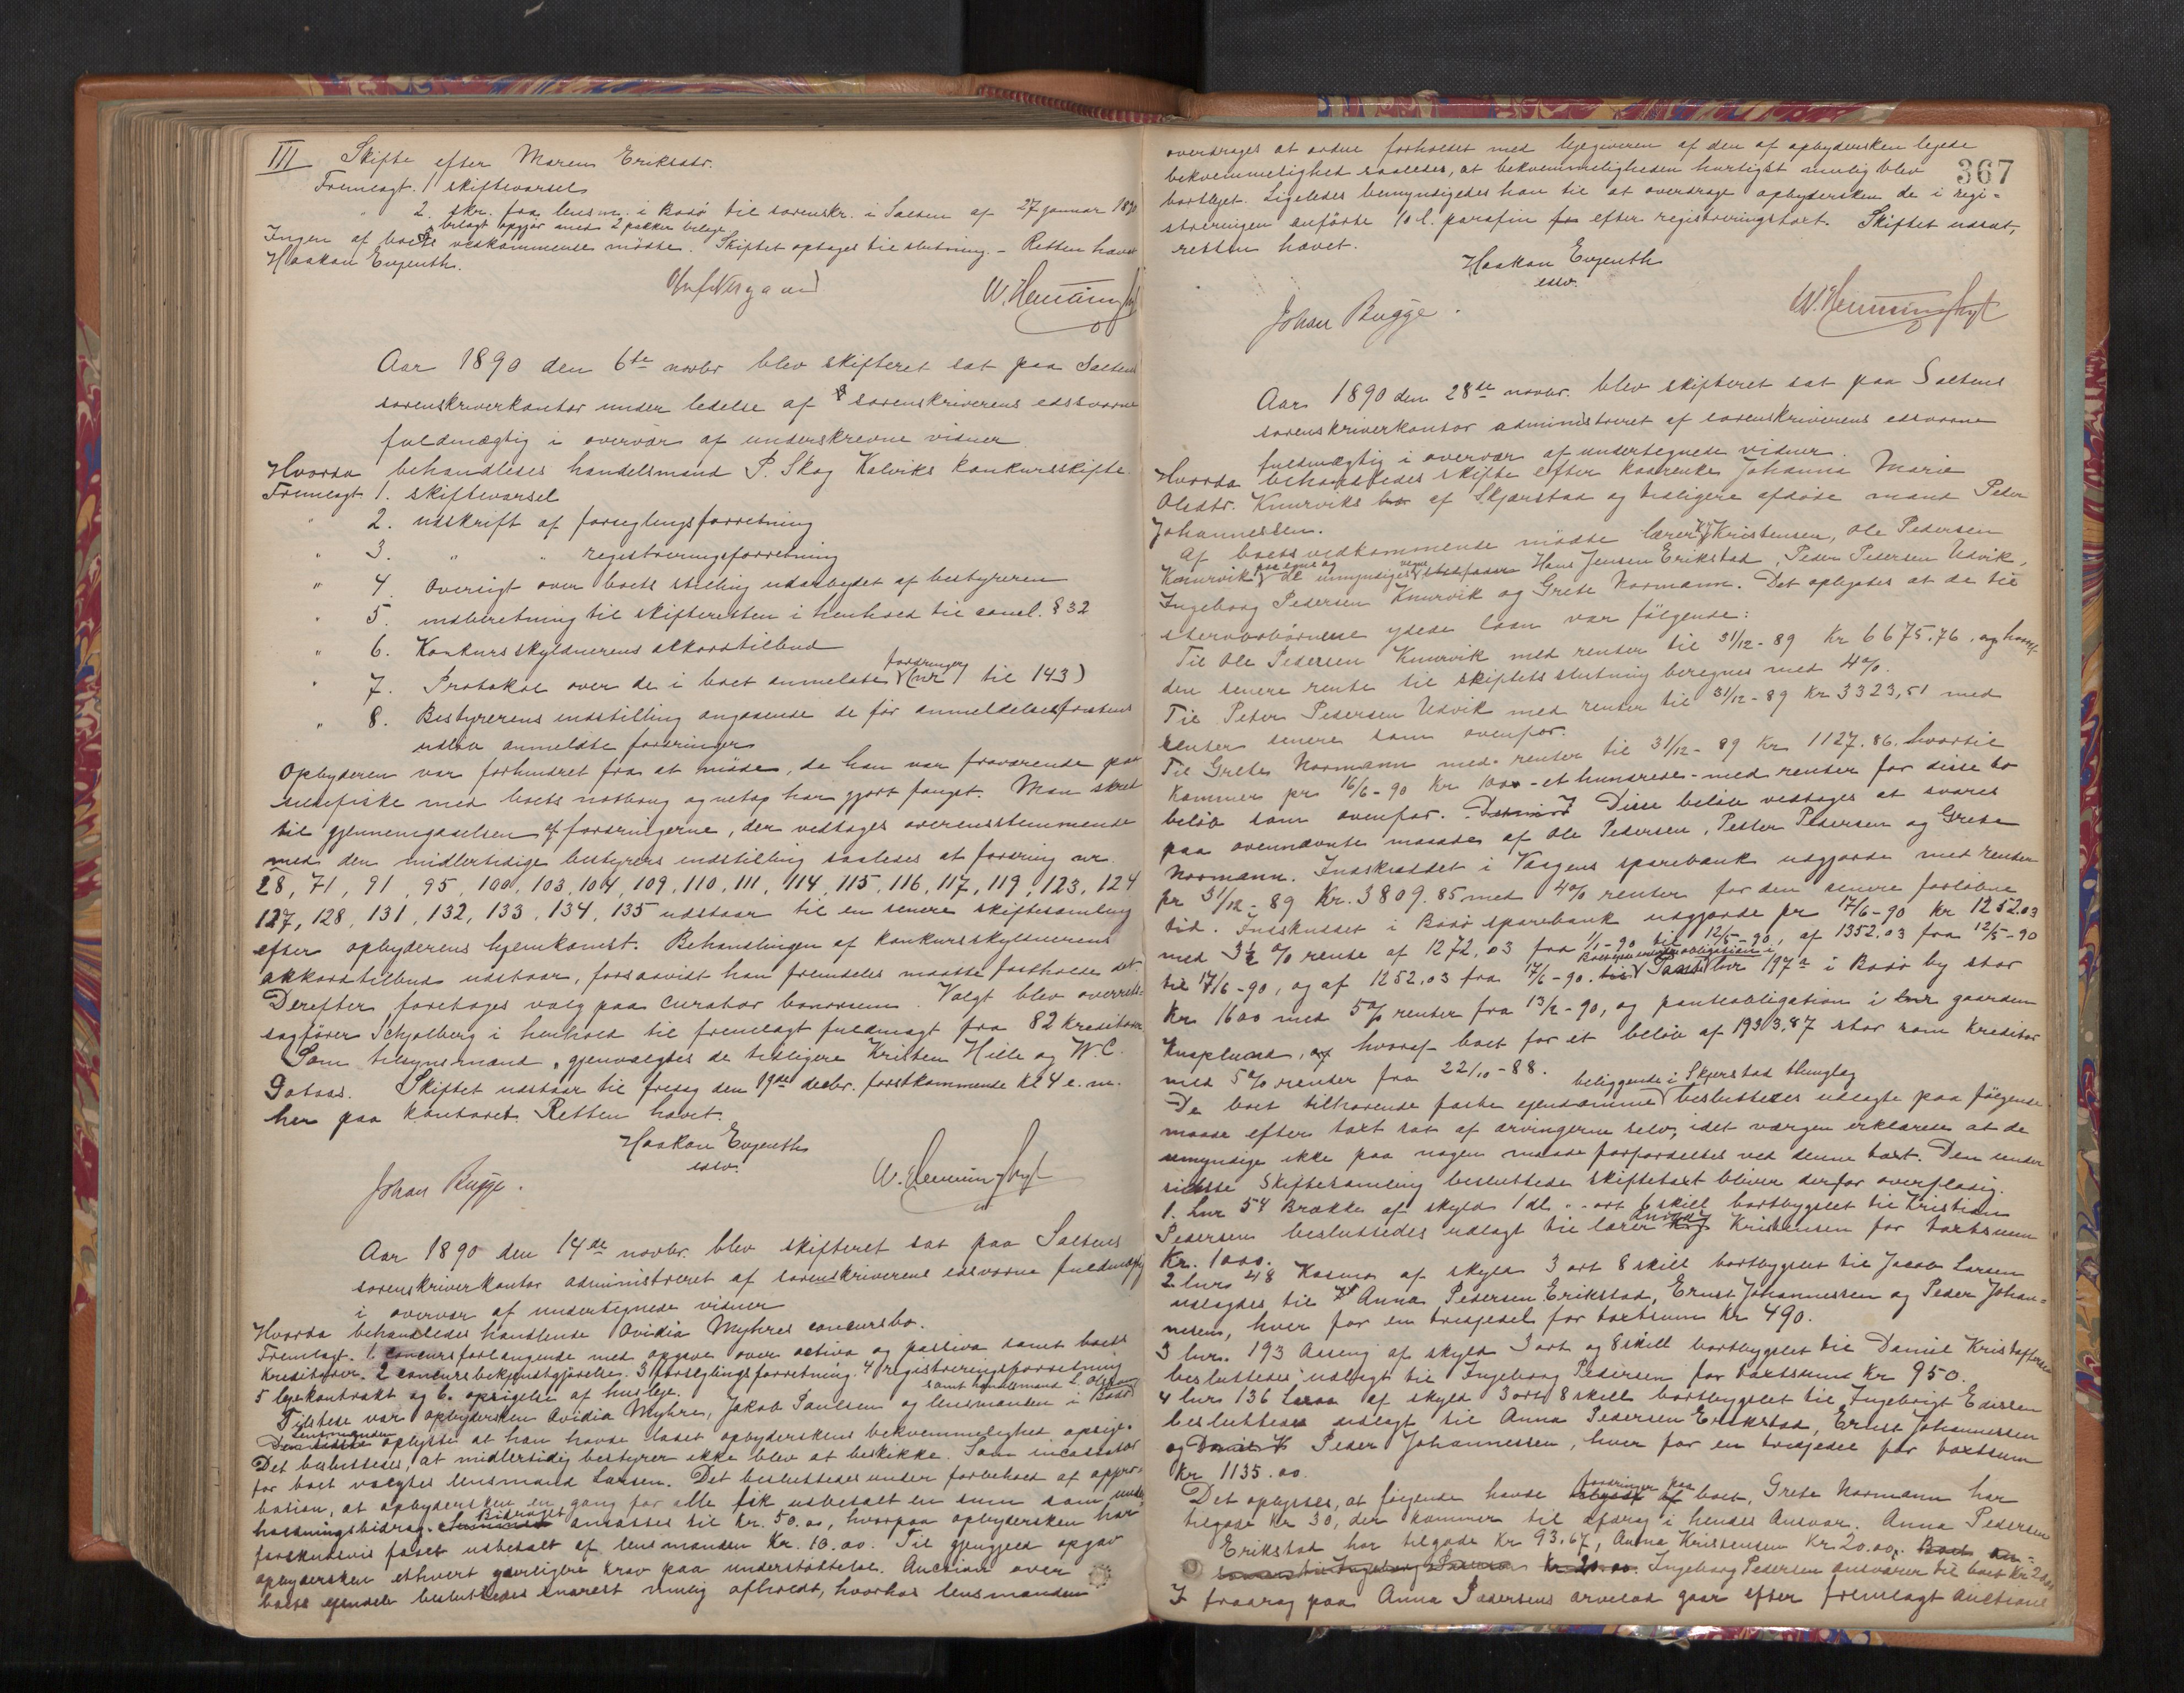 III Skifte efter Maren Eriksdtr.
Fremlagt. 1 skiftevarsel
" 2. skr. fra lensm. i Bodø til sorenskr. i Salten af 27 januar 1890
bilagt opgjør med 2 pakker bilage
Ingen af boets vedkommende mødte. Skiftet optages til slutning. – Retten hævet
Haakon Evjenth.
W. Henningsen
Aar 1890 den 6te novbr blev skifteret sat paa Saltens
sorenskriverkontor under ledelse af sorenskriverens edssvorne
fuldmægtig i overvær af underskrevne vidner.
Hvorda behandledes handelsmand P. Skog Kalviks konkursskifte.
Fremlagt 1. skiftevarsel
" 2. udskrift af forseglingsforretning
" 3. " " registreringsforretning
" 4. Oversigt over boets stilling udarbeidet af bestyreren
" 5. indberetning til skifteretten i henhold til concl. § 32
" 6. Konkursskyldnerens akkordtilbud
" 7. Protokol over de i boet anmeldte fordringer (nr 1 til 143)
" 8. Bestyrerens indstilling angaaende de før anmeldelsesfristens
udløb anmeldte fordringer
Opbyderen var forhindret fra at møde, da han var fraværende paa
sildefiske med boets notbrug og netop har gjort fangst. Man skred
til gjennemgaaelsen af fordringerne, der vedtages overensstemmende
med den midlertidige bestyrers indstilling saaledes at fordring nr.
28, 71, 91, 95, 100, 103, 104, 109, 110, 111, 114, 115, 116, 117, 119, 123, 124
127, 128, 131, 132, 133, 134, 135 udstaar til en senere skiftesamling
efter opbyderens hjemkomst. Behandlingen af konkursskyldnerens
akkordtilbud udstaar, forsaavidt han fremdeles maatte fastholde det.
Derefter foretages valg paa curator bonorum. Valgt blev overrets-
sagfører Schjølberg i henhold til fremlagt fuldmagt fra 82 kreditorer
Som tilsynsmænd gjenvalgtes de tidligere Kristen Hille og W.C.
Gotaas. Skiftet udstaar til fredag den 19de decbr. førstkommende kl 4 e.m.
her paa kontoret. Retten hævet.
Haakon Evjenth
edsv.
Johan Bugge.
Aar 1890 den 14de novbr. blev skifteret sat paa Saltens
sorenskriverkontor administreret af sorenskriverens edsvorne fuldmægtig
i overvær af undertegnede vidner
Hvorda behandledes handlende Ovidia Myhres concursbo.
Fremlagt. 1. concursforlangende med opgave over activa og passiva samt boets
kreditorer. 2 concursbekjendtgjørelse. 3 forseglingsforretning. 4 registreringsforretning
5 lejekontrakt og 6. opsigelse af husleje. samt handelsmand L. Olsen
Tilstede var opbydersken Ovidia Myhre, Jakob Paulsen og lensmanden i Bodø
Lensmanden
Den sidste oplyste at han havde ladet opbyderskens bekvemmelighed opsige.
Det besluttedes, at midlertidig bestyrer ikke blev at beskikke. Som incassator
for boet valgtes lensmand Larsen. Det besluttedes under forbehold af appro-
bation, at opbydersken en gang for alle fik udbetalt en sum som under-
holdningsbidrag. Bidraget ansattes til kr. 50.00, hvorpaa opbydersken har
forskudsvis faaet udbetalt af lensmanden Kr. 10.00. Til gjengjeld opgav
opbydersken ethvert yderligere krav paa understøttelse. Auction over
boets ejendele besluttedes snarest mulig afholdt, hvorhos lensmanden
367
overdroges at ordne forholdet med lejegiveren af den af opbydersken lejede
bekvemmelighed saaledes, at bekvemmeligheden hurtigst mulig blev
bortlejet. Ligeledes bemyndigedes han til at overdrage opbydersken de i regi-
streringen anførte 10 l. parafin efter registreringstaxt. Skiftet udsat,
retten hævet.
Haakon Evjenth
edsv.
Johan Bugge.
Aar 1890 den 28de novbr. blev skifteret sat paa Saltens
sorenskriverkontor administreret af sorenskriverens edsvorne
fuldmægtig i overvær af undertegnede vidner.
Hvorda behandledes skifte efter kaarenke Johanna Marie
Olsdtr. Knurviks af Skjærstad og tidligere afdøde mand Peder
Johannessen.
Af boets vedkommende mødte lærer Kristensen, Ole Pedersen
Knurvik paa egne og de umyndiges vegne Hans Jensen Erikstad, Peder Pedersen Udvik,
Ingeborg Pedersen Knurvik og Grete Normann. Det oplystes at de til
stervbobørnene ydede laan var følgende:
Til Ole Pedersen Knurvik med renter til 31/12-89 Kr 6675.76, og hvoraf
den senere rente til skiftets slutning beregnes med 4%.
Til Peter Pedersen Udvik med renter til 31/12-89 Kr 3323,51 med
renter senere som ovenfor.
Til Grete Normann med renter til 31/12-89 Kr 1127.86. hvortil
kommer pr 16/6-90 Kr 100 - et hundrede - med renter for disse to
beløb som ovenfor. Disse beløb vedtages at svares
paa ovennævnte maade af Ole Pedersen, Petter Pedersen og Grete
Normann. Indskuddet i Vaagens sparebank udgjorde med renter
pr 31/12-89 Kr. 3809.85 med 4% renter for den senere forløbne
tid. Indskuddet i Bodø sparebank udgjorde pr 17/6-90 Kr 1252.03
med 3½ % rente af 1272.03 fra 1/1-90 til 12/5-90, af 1352.03 fra 12/5-90
til 17/6-90, og af 1252.03 fra 17/6-90. lnr 197a i Bodø by stor
Kr 1600 med 5% renter fra 13/12-90, og panteobligation i gaarden
Knaplund, hvoraf boet for et beløb af 1933,87 staar som kreditor
med 5% renter fra 22/10-88.
De boet tilhørende faste ejendomme beliggende i Skjerstad thinglag besluttedes udlagte paa følgende
maade efter taxt sat af arvingerne selv, idet værgen erklærede at de
umyndige ikke paa nogen maade forfordeltes ved denne taxt. Den under
sidste skiftesamling besluttede skiftetaxt bliver derfor overflødig.
1. Lnr 54 Brække af skyld 1 dl. - ort 6 skill bortbygslet til Kristian
Pedersen besluttedes udlagt til lærer Kristensen for taxtsum
Kr. 1000.
2 lnr 48 Kosmo af skyld 3 ort 8 skill bortbygslet til Jacob Larsen
udlagdes til Anna Pedersen Erikstad, Ernst Johannessen og Peder Johan-
nesen, hver for en tredjedel for taxtsum Kr 490.
3 lnr. 193 Aseng af skyld 3 ort og 8 skill bortbygslet til Daniel Kristoffersen
besluttedes udlagt til Ingeborg Pedersen for taxtsum Kr 950.
4 lnr 136 af skyld 3 ort 8 skill bortbygslet til Ingebrigt Edissen
besluttedes udlagt til Anna Pedersen Erikstad, Ernst Johannessen
og Peder Johannessen, hver for en tredjedel for taxtsum
Kr 1135.00.
Det oplystes, at følgende havde fordringer paa boet, Grete Normann har
tilgode Kr 30, der kommer til afdrag i hendes Ansvar. Anna Pedersen
Erikstad har tilgode Kr 93.67, Anna Kristensen Kr 20.00.
Kr 20.00. Ingeborg Pedersen ansvarer til boet Kr 20
I fradrag paa Anna Pedersens arvelod gaar efter fremlagt auctions